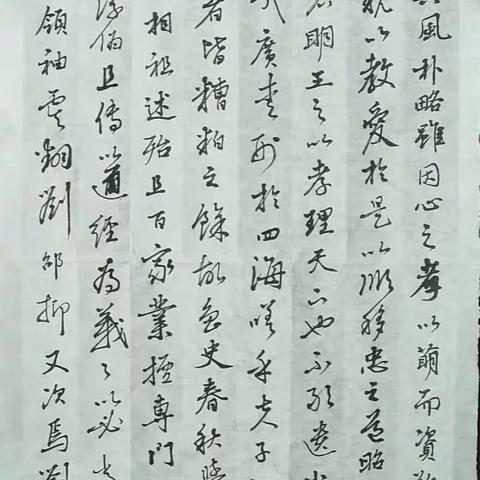 風朴略雖因心之孝以萌而資
以教愛於是以順移忠之道昭
明王之以孝理天下也不敢遺
廣愛刑於四海嗟乎夫子
者皆糟粕之餘故魯史春秋學
相祖述殆且百家業擅專門
浮偽且傳以通經為義々以必
領袖虞翻劉邵抑又次焉劉